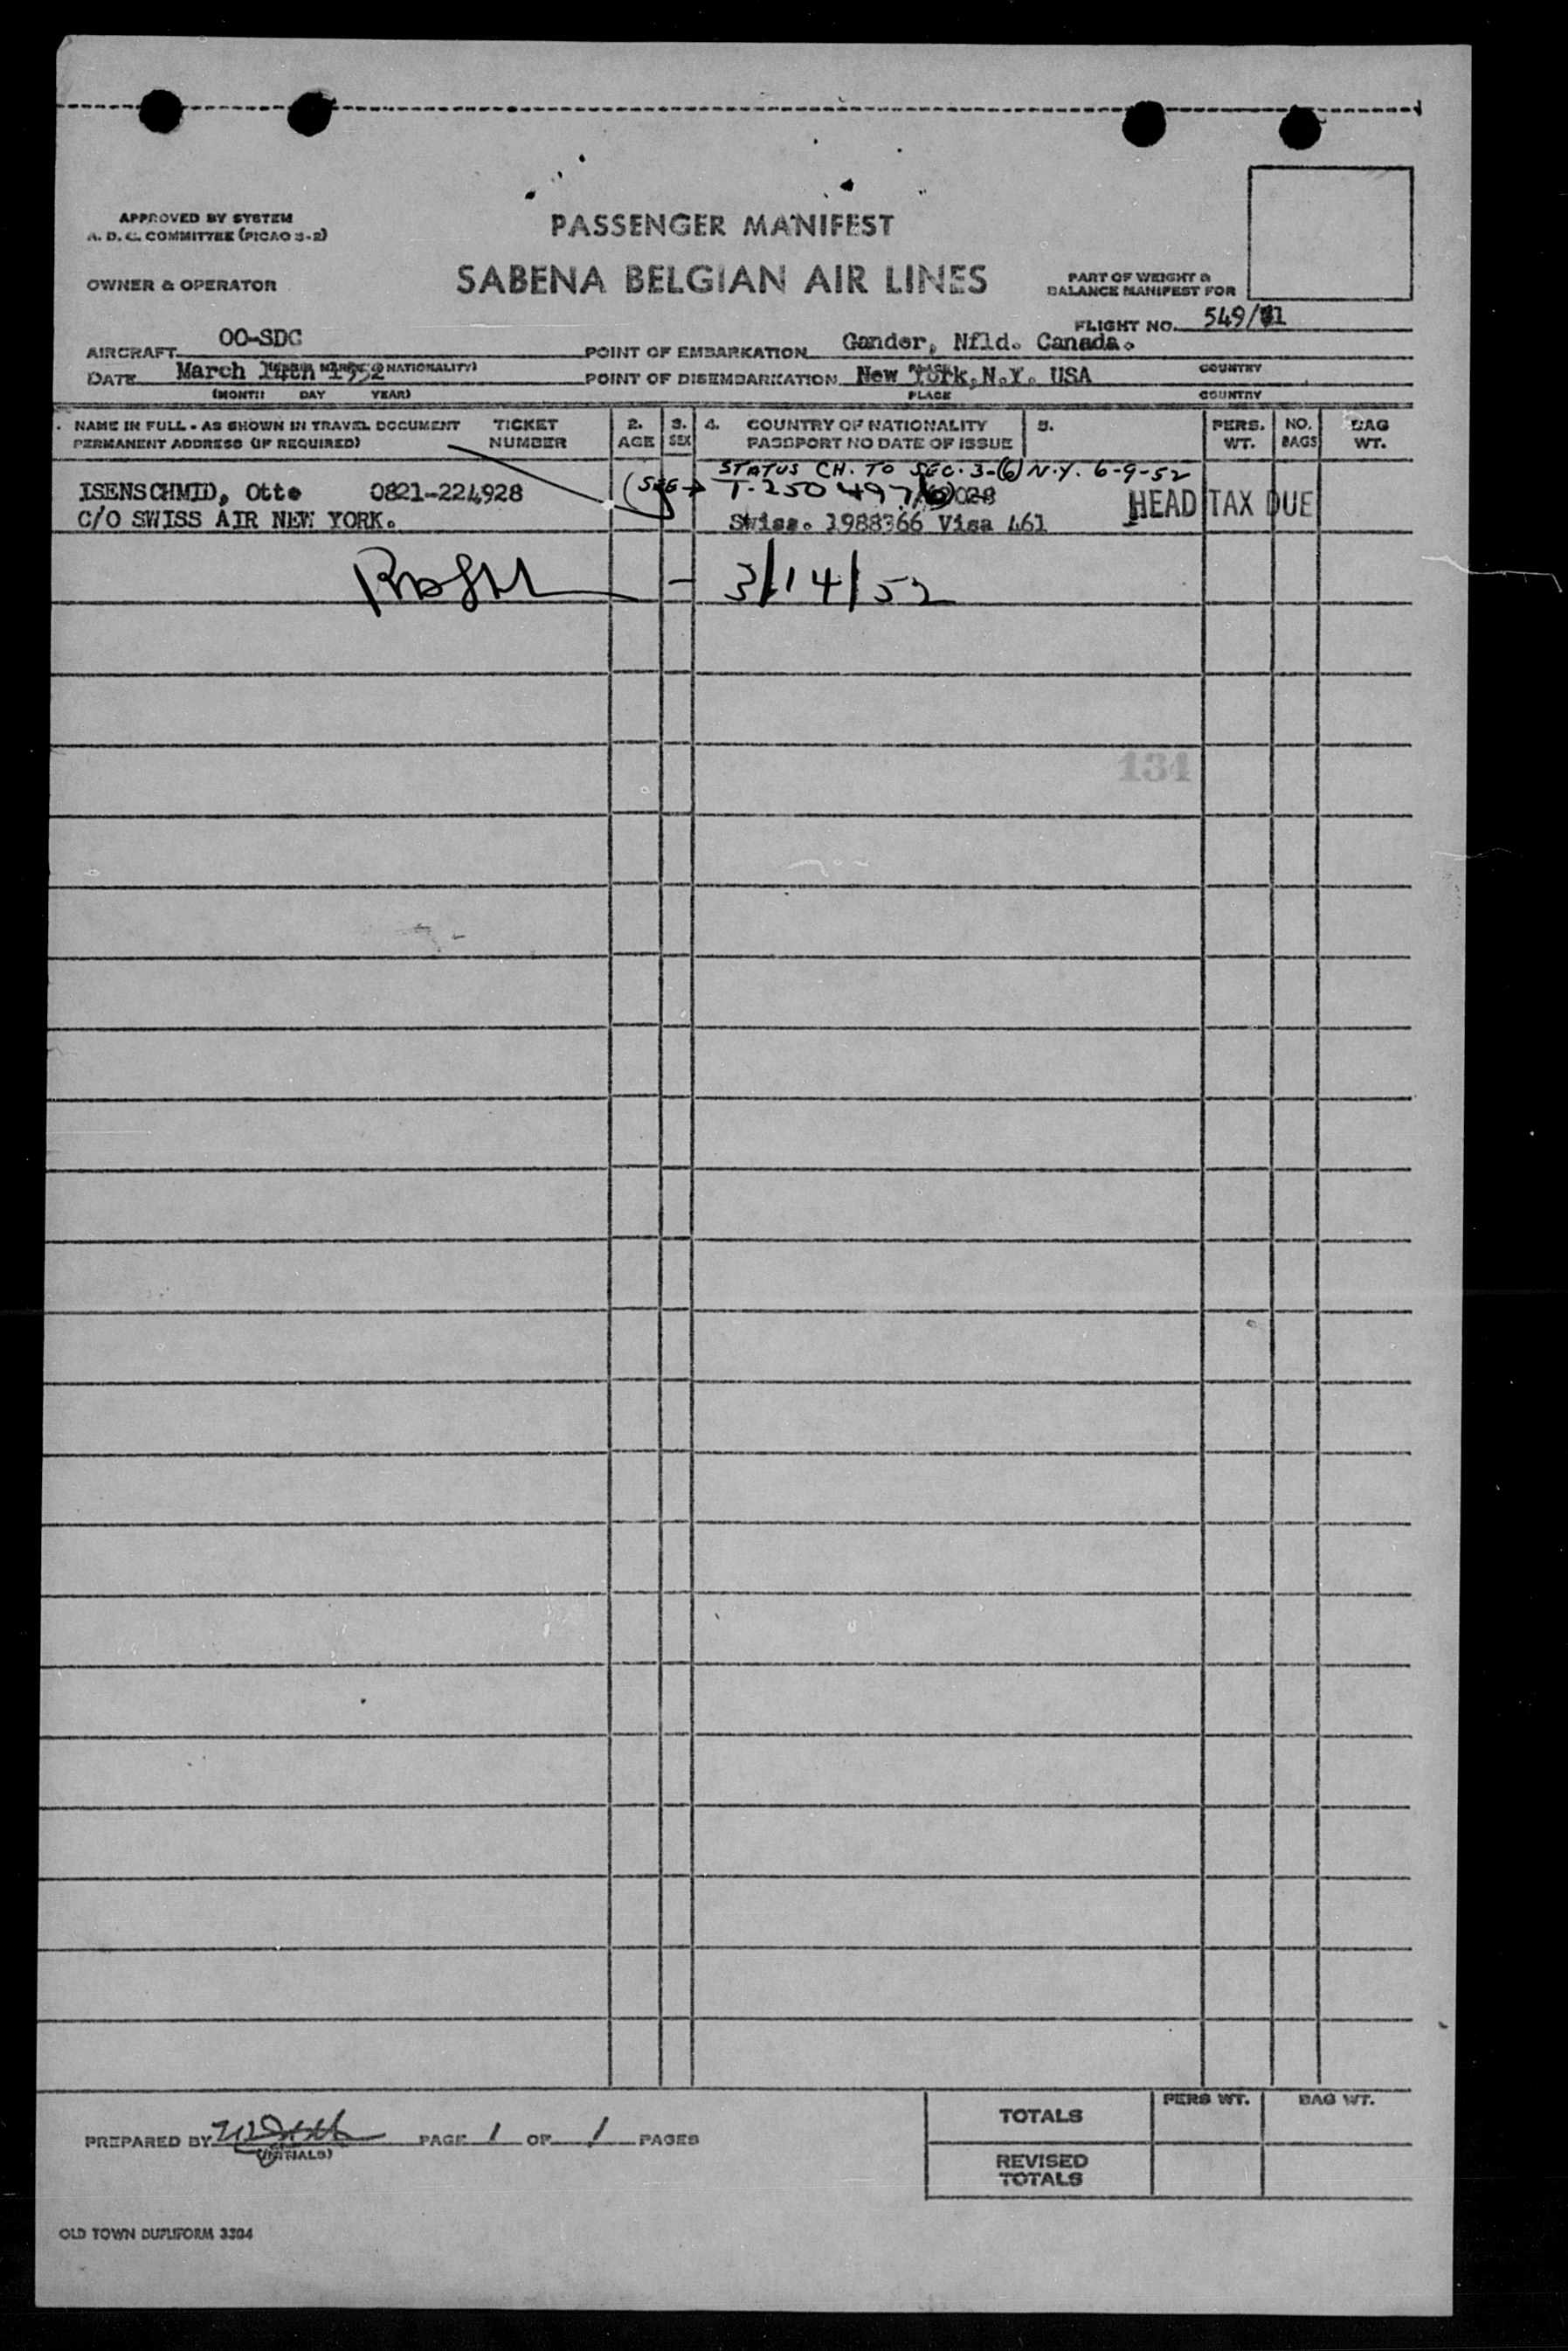 APPROVED BY SYSTEM
A. D. C. COMMITTEE (PICAO S-2)
PASSENGER MANIFEST
OWNER & OPERATOR
SABENA BELGIAN AIR LINES
PART OF WEIGHT &
BALANCE MANIFEST FOR
FLIGHT NO. 549/
AIRCRAFT OO-SDC
POINT OF EMBARKATION Gander, Nfld. Canada.
NATIONALITY)
COUNTRY
DATE March 14th 1952
POINT OF DISEMBARKATION New York, N.Y. USA
(MONTH DAY YEAR)
PLACE COUNTRY
NAME IN FULL - AS SHOWN IN TRAVEL DOCUMENT TICKET 2. 3. 4. COUNTRY OF NATIONALITY 5. PERS. NO. BAG
PERMANENT ADDRESS (IF REQUIRED) NUMBER AGE SEX PASSPORT NO DATE OF ISSUE WT. BAGS WT.
STATUS CH. TO SEC. 3-(6) N.Y. 6-9-52
ISENSCHMID, Otto 0821-224928 T-250497
HEAD TAX DUE
C/O SWISS AIR NEW YORK. Swiss. 1988366 Visa 461
- 3/14/52
134
PREPARED BY PAGE 1 OF 1 PAGES
(INITIALS)
TOTALS PERS WT. BAG WT.
REVISED
TOTALS
OLD TOWN DUPLIFORM 3304